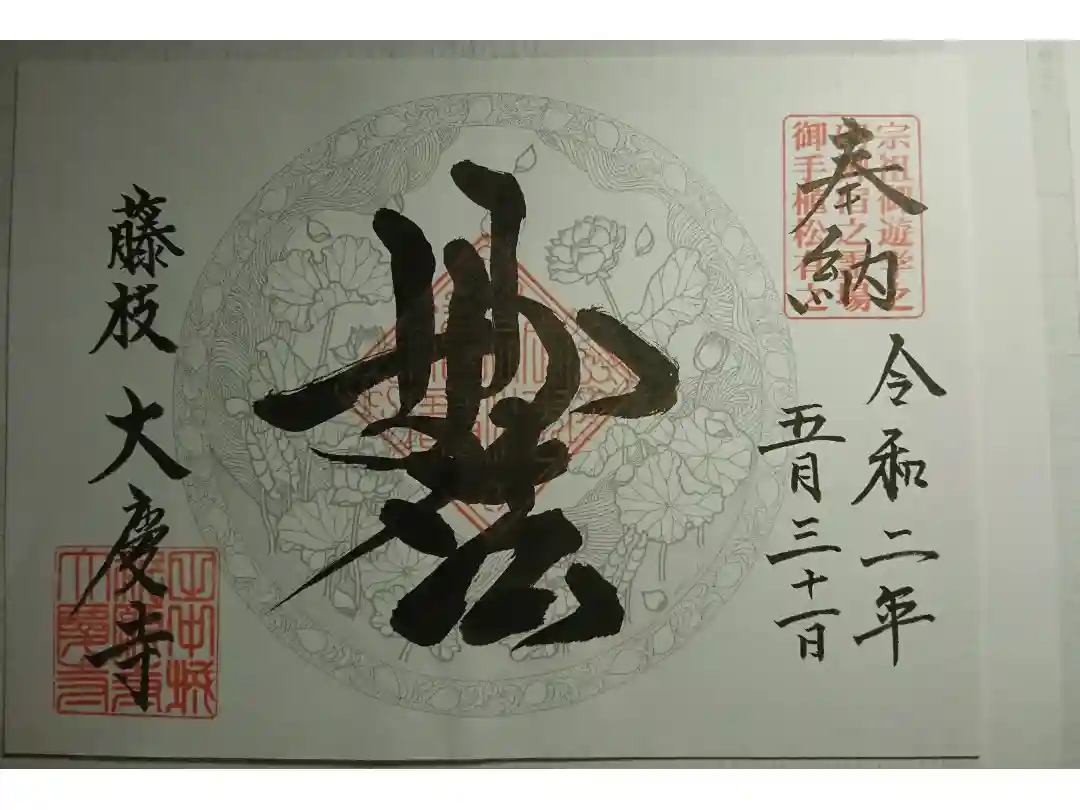 奉納
宗祖御遊学之
宿之霊場
御手植松
令和二年
五月三十一日
妙法
藤枝 大慶寺